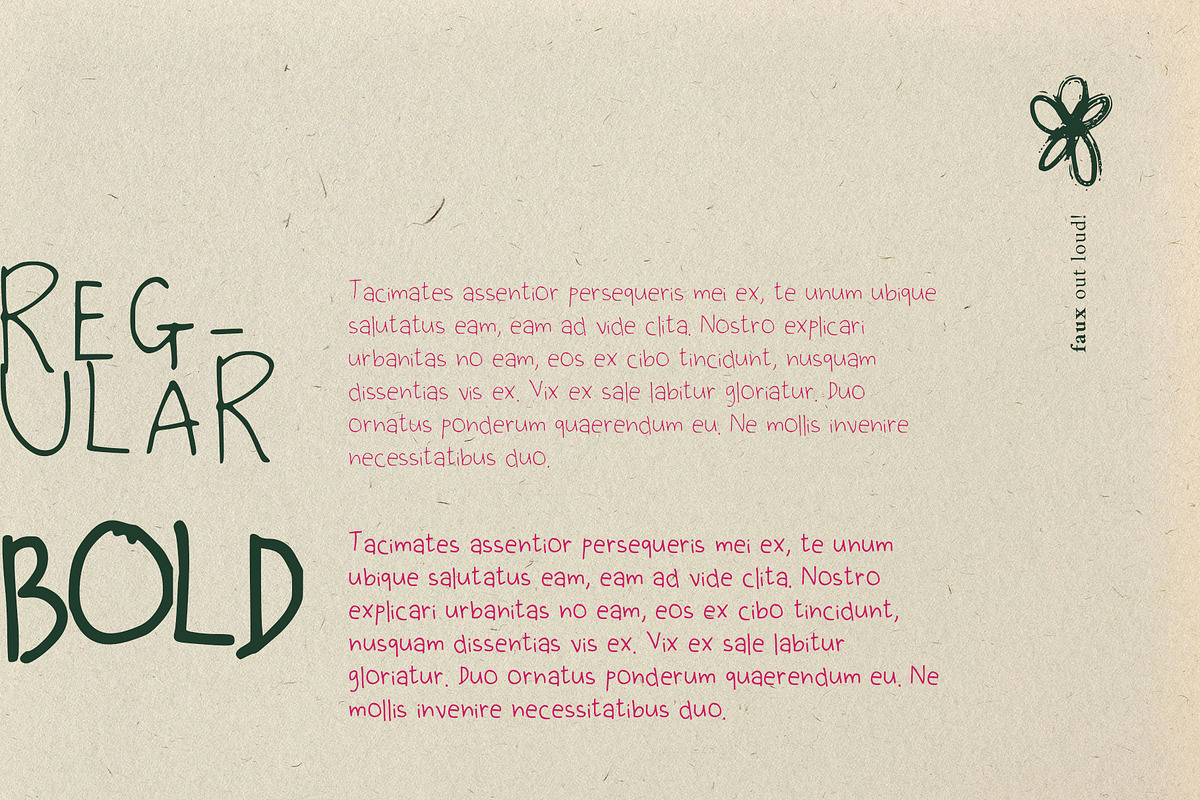 REG-
ULAR
Tacimates assentior persequeris mei ex, te unum ubique
salutatus eam, eam ad vide clita. Nostro explicari
urbanitas no eam, eos ex cibo tincidunt, nusquam
dissentias vis ex. Vix ex sale labitur gloriatur. Duo
ornatus ponderum quaerendum eu. Ne mollis invenire
necessitatibus duo.
BOLD
Tacimates assentior persequeris mei ex, te unum
ubique salutatus eam, eam ad vide clita. Nostro
explicari urbanitas no eam, eos ex cibo tincidunt,
nusquam dissentias vis ex. Vix ex sale labitur
gloriatur. Duo ornatus ponderum quaerendum eu. Ne
mollis invenire necessitatibus duo.
faux out loud!